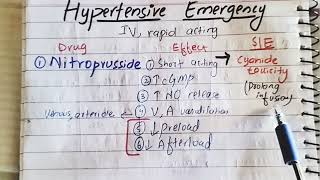 Hypertensive Emergency
IV, rapid acting
Drug Effect S/E
① Nitroprusside ① Short acting → Cyanide toxicity
② ↑ cGMP (Prolong infusion)
③ ↑ NO release
Venous, arteriole ← ④ V, A vasodilation
⑤ ↓ Preload
⑥ ↓ Afterload